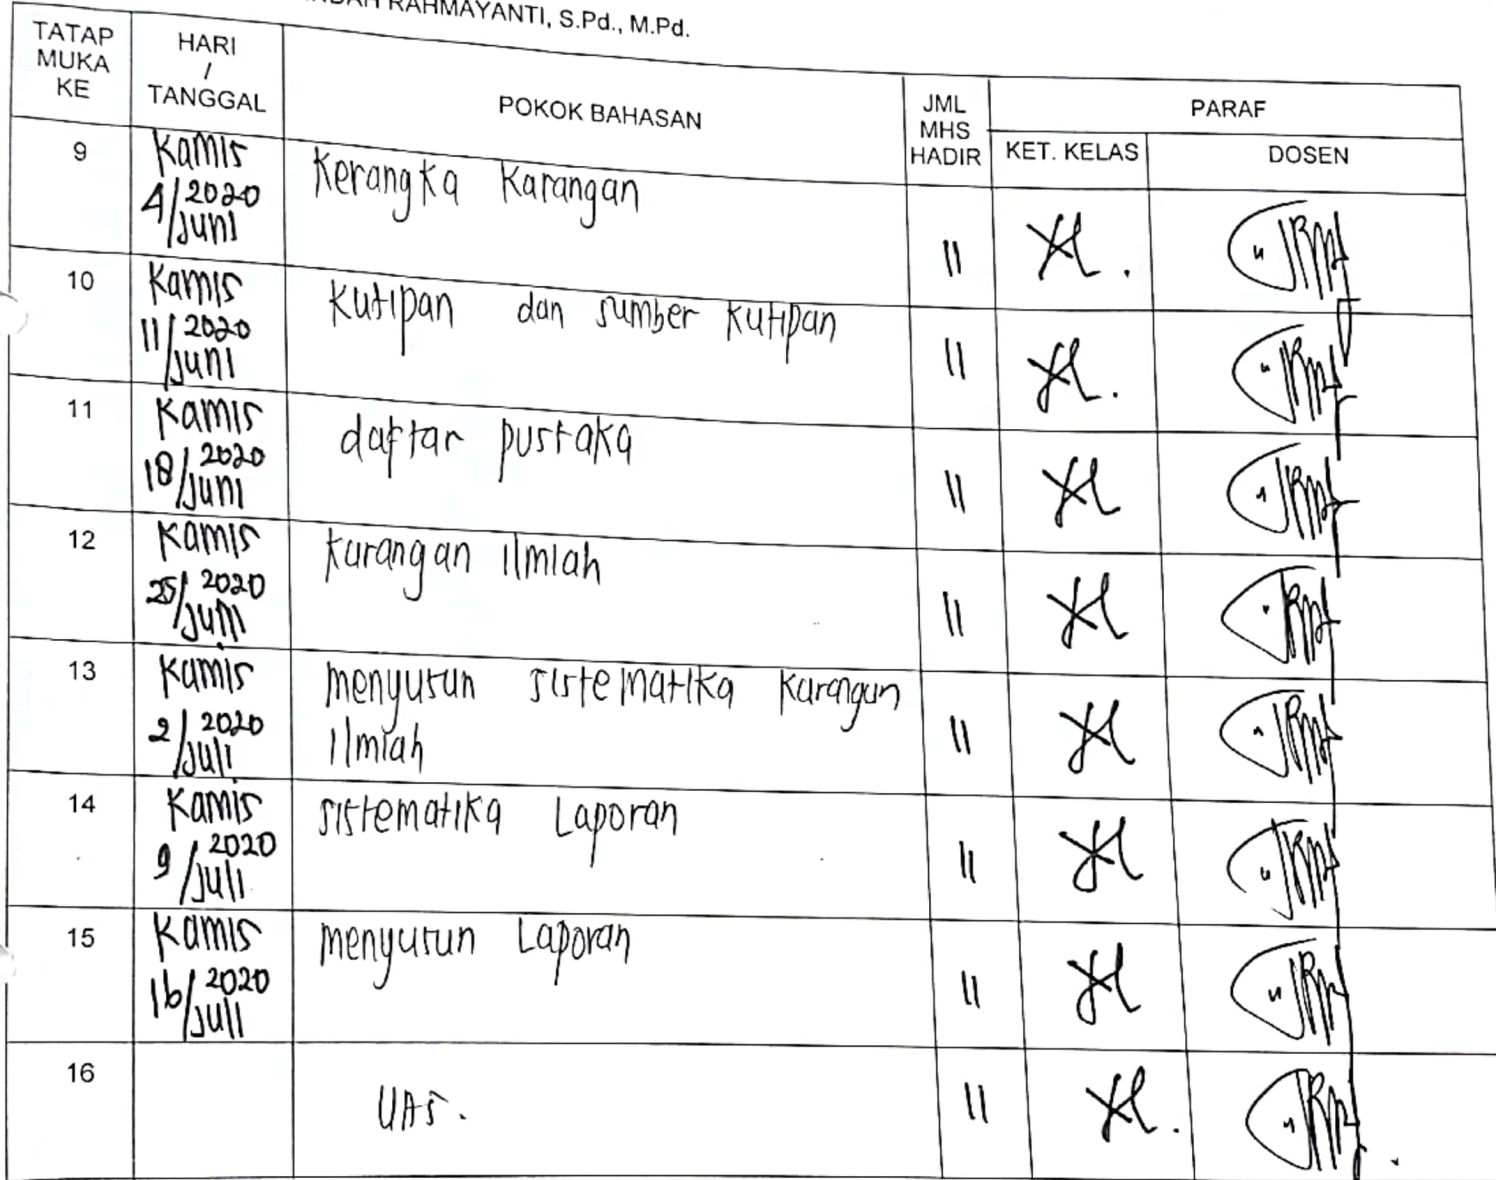 RAHMAYANTI, S.Pd., M.Pd.
TATAP
MUKA
KE
HARI
/
TANGGAL
POKOK BAHASAN
JML
MHS
HADIR
PARAF
KET. KELAS
DOSEN
9
Kamis
4/2020
Juni
Kerangka Karangan
11
10
Kamis
11/2020
Juni
Kutipan dan sumber kutipan
11
11
Kamis
18/2020
Juni
daftar pustaka
11
12
Kamis
25/2020
Juni
karangan Ilmiah
11
13
Kamis
2/2020
Juli
menyusun sistematika Karangan
Ilmiah
11
14
Kamis
9/2020
Juli
sistematika Laporan
11
15
Kamis
16/2020
Juli
menyusun Laporan
11
16
UAS.
11